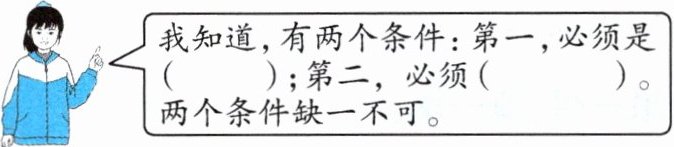 我知道，有两个条件：第一，必须是
（　　　）；第二，必须（　　　　）。
两个条件缺一不可。